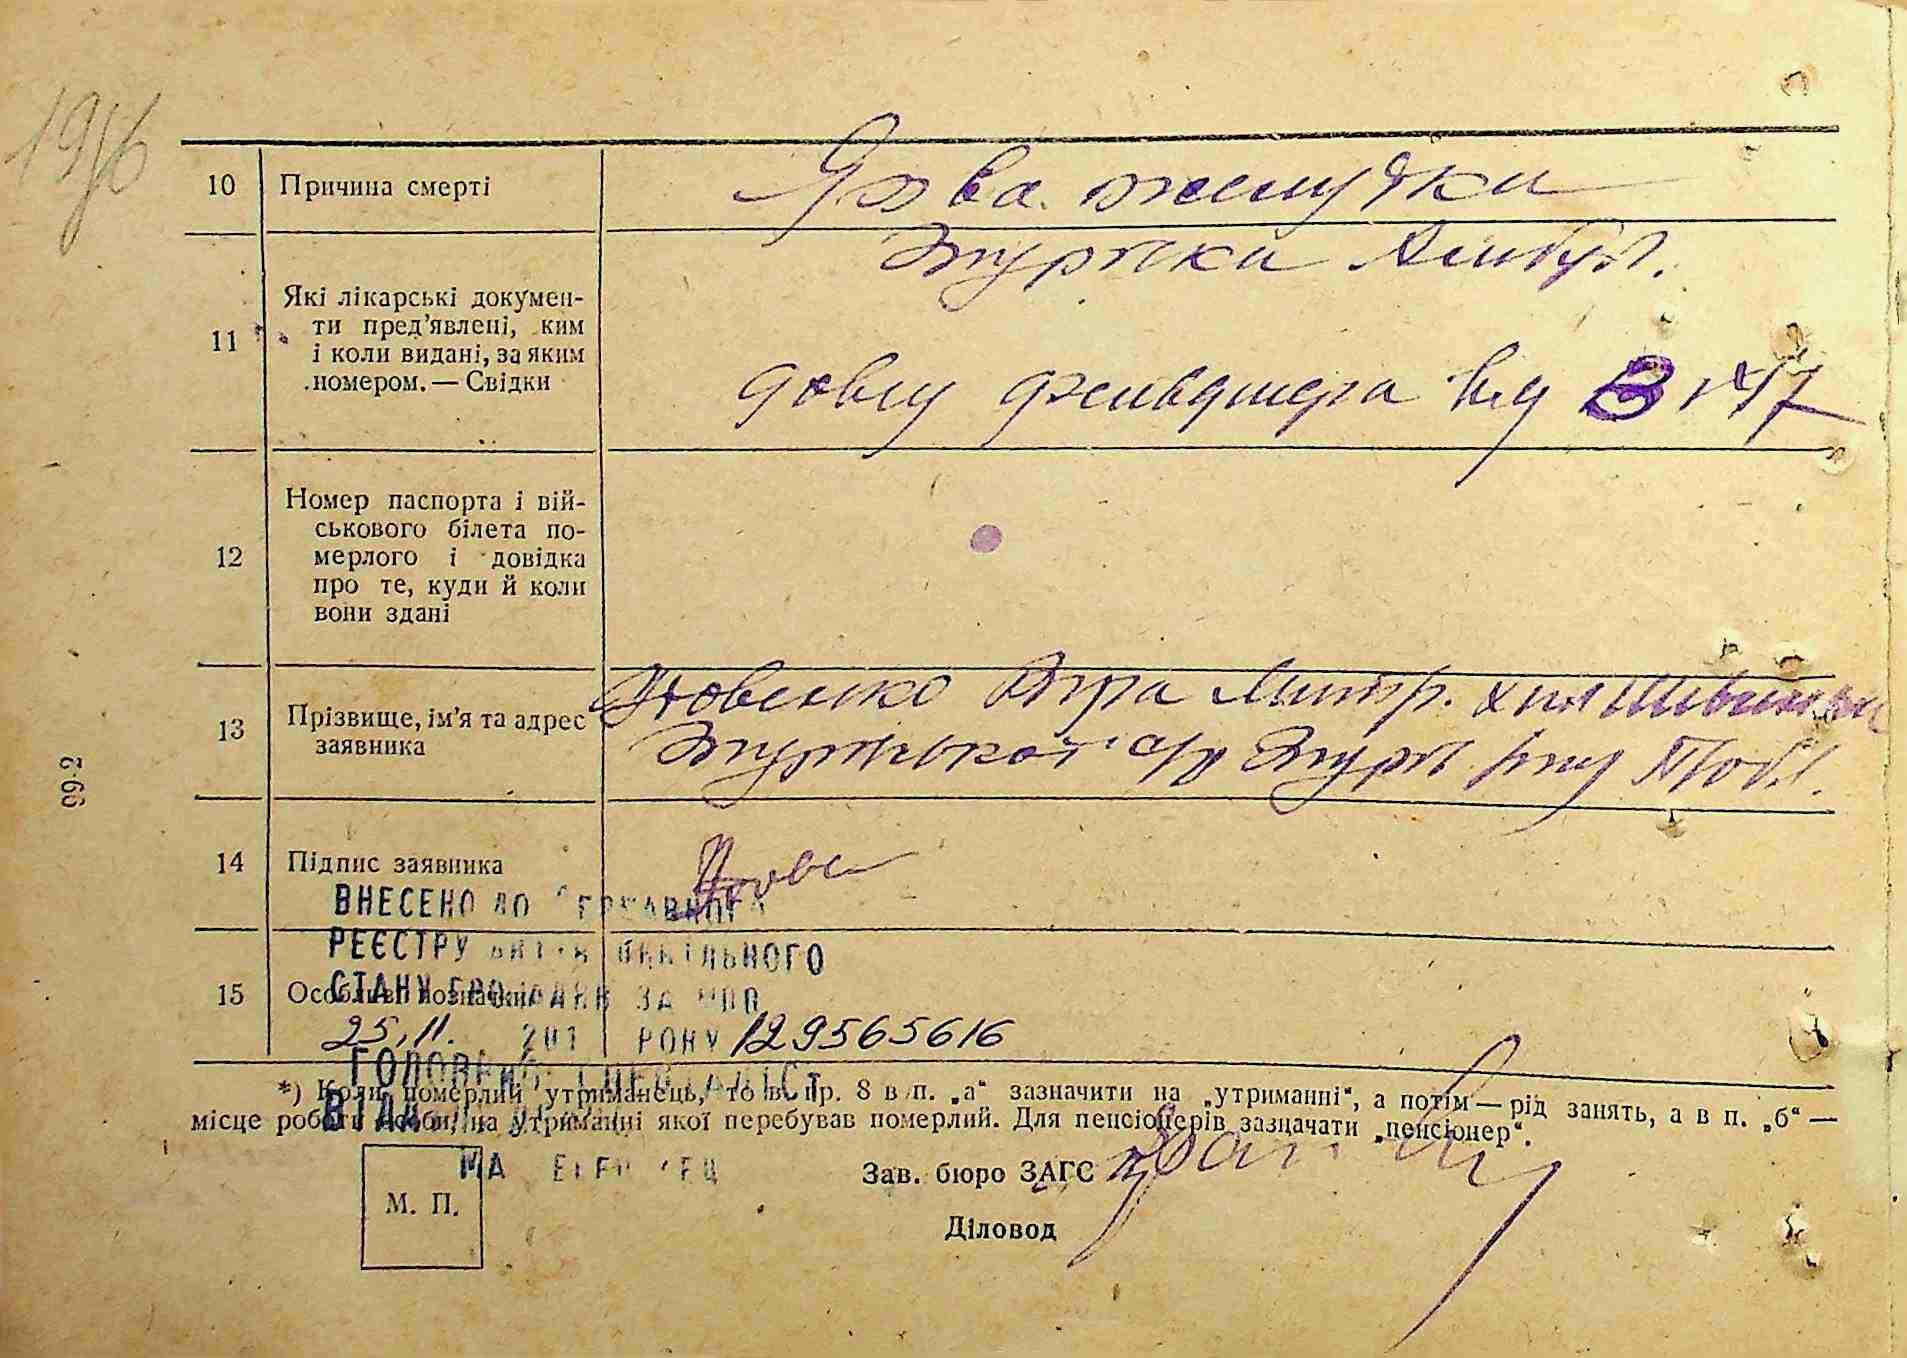 1946
10 Причина смерті
Язва желудка
11 Які лікарські докумен-
ти пред'явлені, ким
і коли видані, за яким
номером. — Свідки
Згурівська Амбул.
довід фельдшера від 3
12 Номер паспорта і вій-
ськового білета по-
мерлого і довідка
про те, куди й коли
вони здані
13 Прізвище, ім'я та адрес
заявника
Митр. хут
Згурівської с/р Згурів р-ну П обл.
14 Підпис заявника
ВНЕСЕНО ДО ДЕРЖАВНОГО
РЕЄСТРУ АКТІВ ЦИВІЛЬНОГО
15 Особливі позначки
СТАНУ ГРОМАДЯН ЗА
25.11. 201 РОКУ 129565616
ГОЛОВНИЙ СПЕЦІАЛІСТ
*) Коли померлий утриманець, то в гр. 8 в п. „а“ зазначити на „утриманні“, а потім — рід занять, а в п. „б“ —
місце роботи особи, на утриманні якої перебував померлий. Для пенсіонерів зазначати „пенсіонер“.
Зав. бюро ЗАГС
М. П.
Діловод
99-2